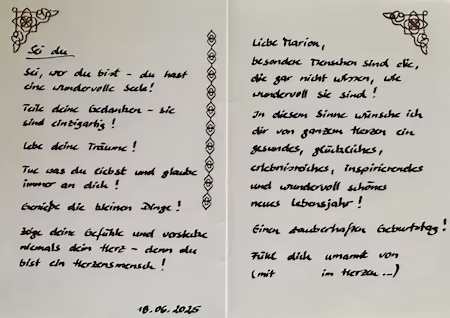 Sei du
Sei, wer du bist – du hast
eine wundervolle Seele!
Teile deine Gedanken – sie
sind einzigartig!
Lebe deine Träume!
Tue was du liebst und glaube
immer an dich!
Genieße die kleinen Dinge!
Zeige deine Gefühle und verstecke
niemals dein Herz – denn du
bist ein Herzensmensch!
18.06.2025
Liebe Marion,
besondere Menschen sind die,
die gar nicht wissen, wie
wundervoll sie sind!
In diesem Sinne wünsche ich
dir von ganzem Herzen ein
gesundes, glückliches,
erlebnisreiches, inspirierendes
und wundervoll schönes
neues Lebensjahr!
Einen zauberhaften Geburtstag!
Fühl dich umarmt von
(mit im Herzen ...)